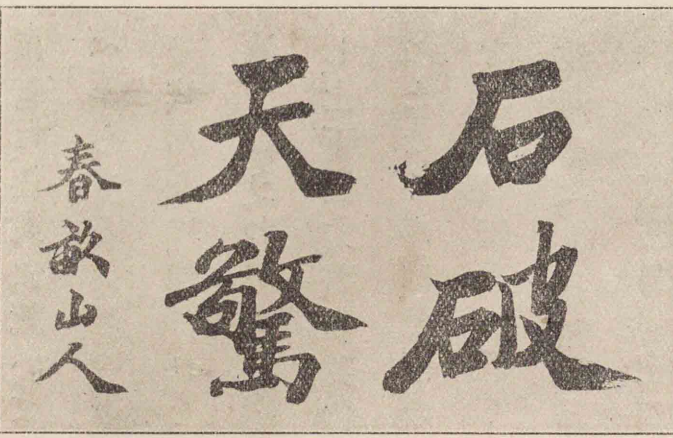 石破
天驚
春畝山人